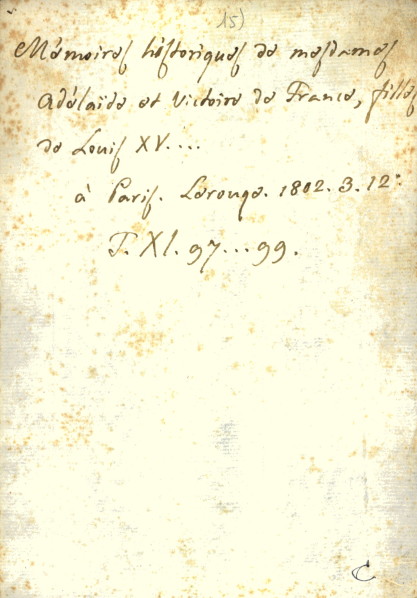 15)
Mémoires historiques de mesdames
Adélaïde et Victoire de France, filles
de Louis XV....
à Paris. Lerouge. 1802. 3. 12:
T. XI. 97...99.
C